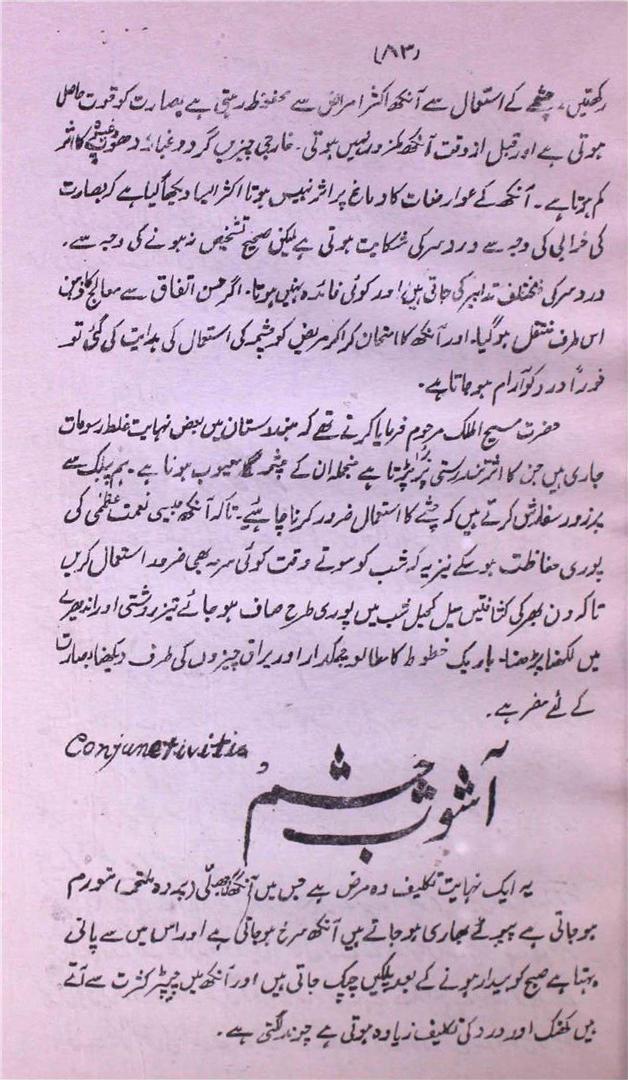 (۸۳)
رکھتیں، چشمے کے استعمال سے آنکھ اکثر امراض سے محفوظ رہتی ہے بصارت کو قوت حاصل
ہوتی ہے اور قبل از وقت آنکھ کمزور نہیں ہوتی۔ خارجی چیزیں گرد و غبار دھوپ وغیرہ کا اثر
کم ہوتا ہے۔ آنکھ کے عوارضات کا دماغ پر اثر نہیں ہوتا اکثر ایسا دیکھا گیا ہے کہ بصارت
کی خرابی کی وجہ سے درد سر کی شکایت ہوتی ہے لیکن صحیح تشخیص نہ ہونے کی وجہ سے۔
درد سر کی مختلف تدابیر کی جاتی ہیں، اور کوئی فائدہ نہیں ہوتا۔ اگر حسن اتفاق سے معالج کا ذہن
اس طرف منتقل ہو گیا۔ اور آنکھ کا امتحان کرا کر مریض کو چشمہ کی استعمال کی ہدایت کی گئی تو
فوراً درد کو آرام ہو جاتا ہے۔
حضرت مسیح الملک مرحوم فرمایا کرتے تھے کہ ہندوستان میں بعض نہایت غلط رسومات
جاری ہیں جن کا اثر تندرستی پر بُرا پڑتا ہے منجملہ ان کے چشمہ کا معیوب ہونا ہے۔ ہم پبلک سے
پر زور سفارش کرتے ہیں کہ چشمے کا استعمال ضرور کرنا چاہئیے۔ تاکہ آنکھ جیسی نعمت عظمٰی کی
پوری حفاظت ہو سکے نیز یہ کہ شب کو سوتے وقت کوئی سرمہ بھی ضرور استعمال کریں
تاکہ دن بھر کی کثافتیں میل کچیل شب میں پوری طرح صاف ہو جائے تیز روشنی اور اندھیرے
میں لکھنا پڑھنا۔ باریک خطوط کا مطالعہ چمکدار اور براق چیزوں کی طرف دیکھنا بصارت
کے لئے مضر ہے۔
Conjunctivitis
آشوب چشم
یہ ایک نہایت تکلیف دہ مرض ہے جس میں آنکھ کی جھلّی (پردہ ملتحمہ) متورم
ہو جاتی ہے پپوٹے بھاری ہو جاتے ہیں آنکھ سرخ ہو جاتی ہے اور اس میں سے پانی
بہتا ہے صبح کو بیدار ہونے کے بعد پلکیں چپک جاتی ہیں اور آنکھ میں چیپڑ کثرت سے آتے
ہیں کھٹک اور درد کی تکلیف زیادہ ہوتی ہے چوند لگتی ہے۔